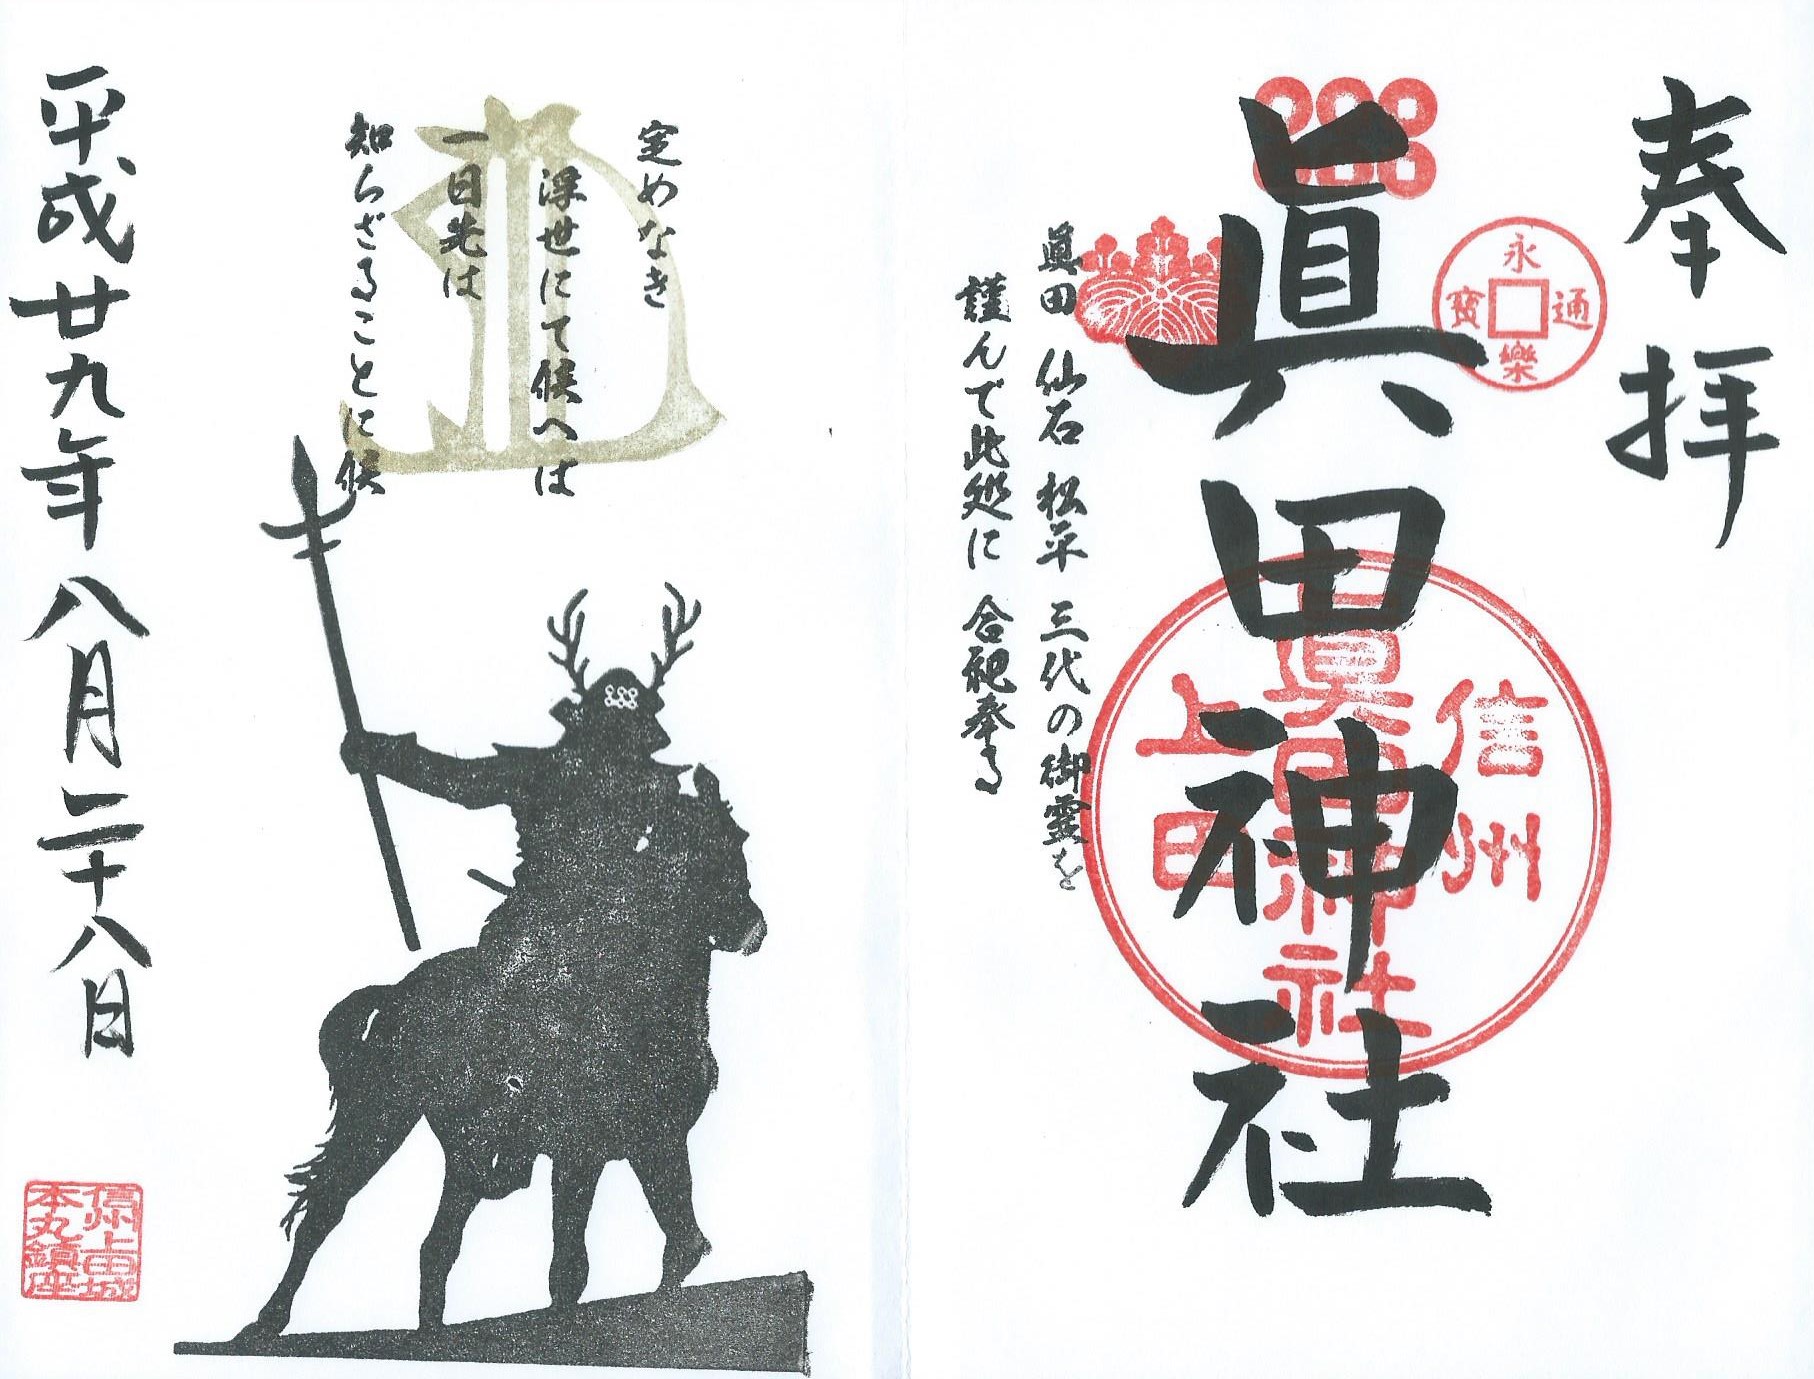 奉拝
永樂通寳
眞田神社
信州
眞田神社
上田
眞田 仙石 松平 三代の御霊を
謹んで此処に 合祀奉る
定めなき
浮世にて候へは
一日先は
知らざることに候
平成廿九年八月二十八日
信州上田城
本丸鎮座